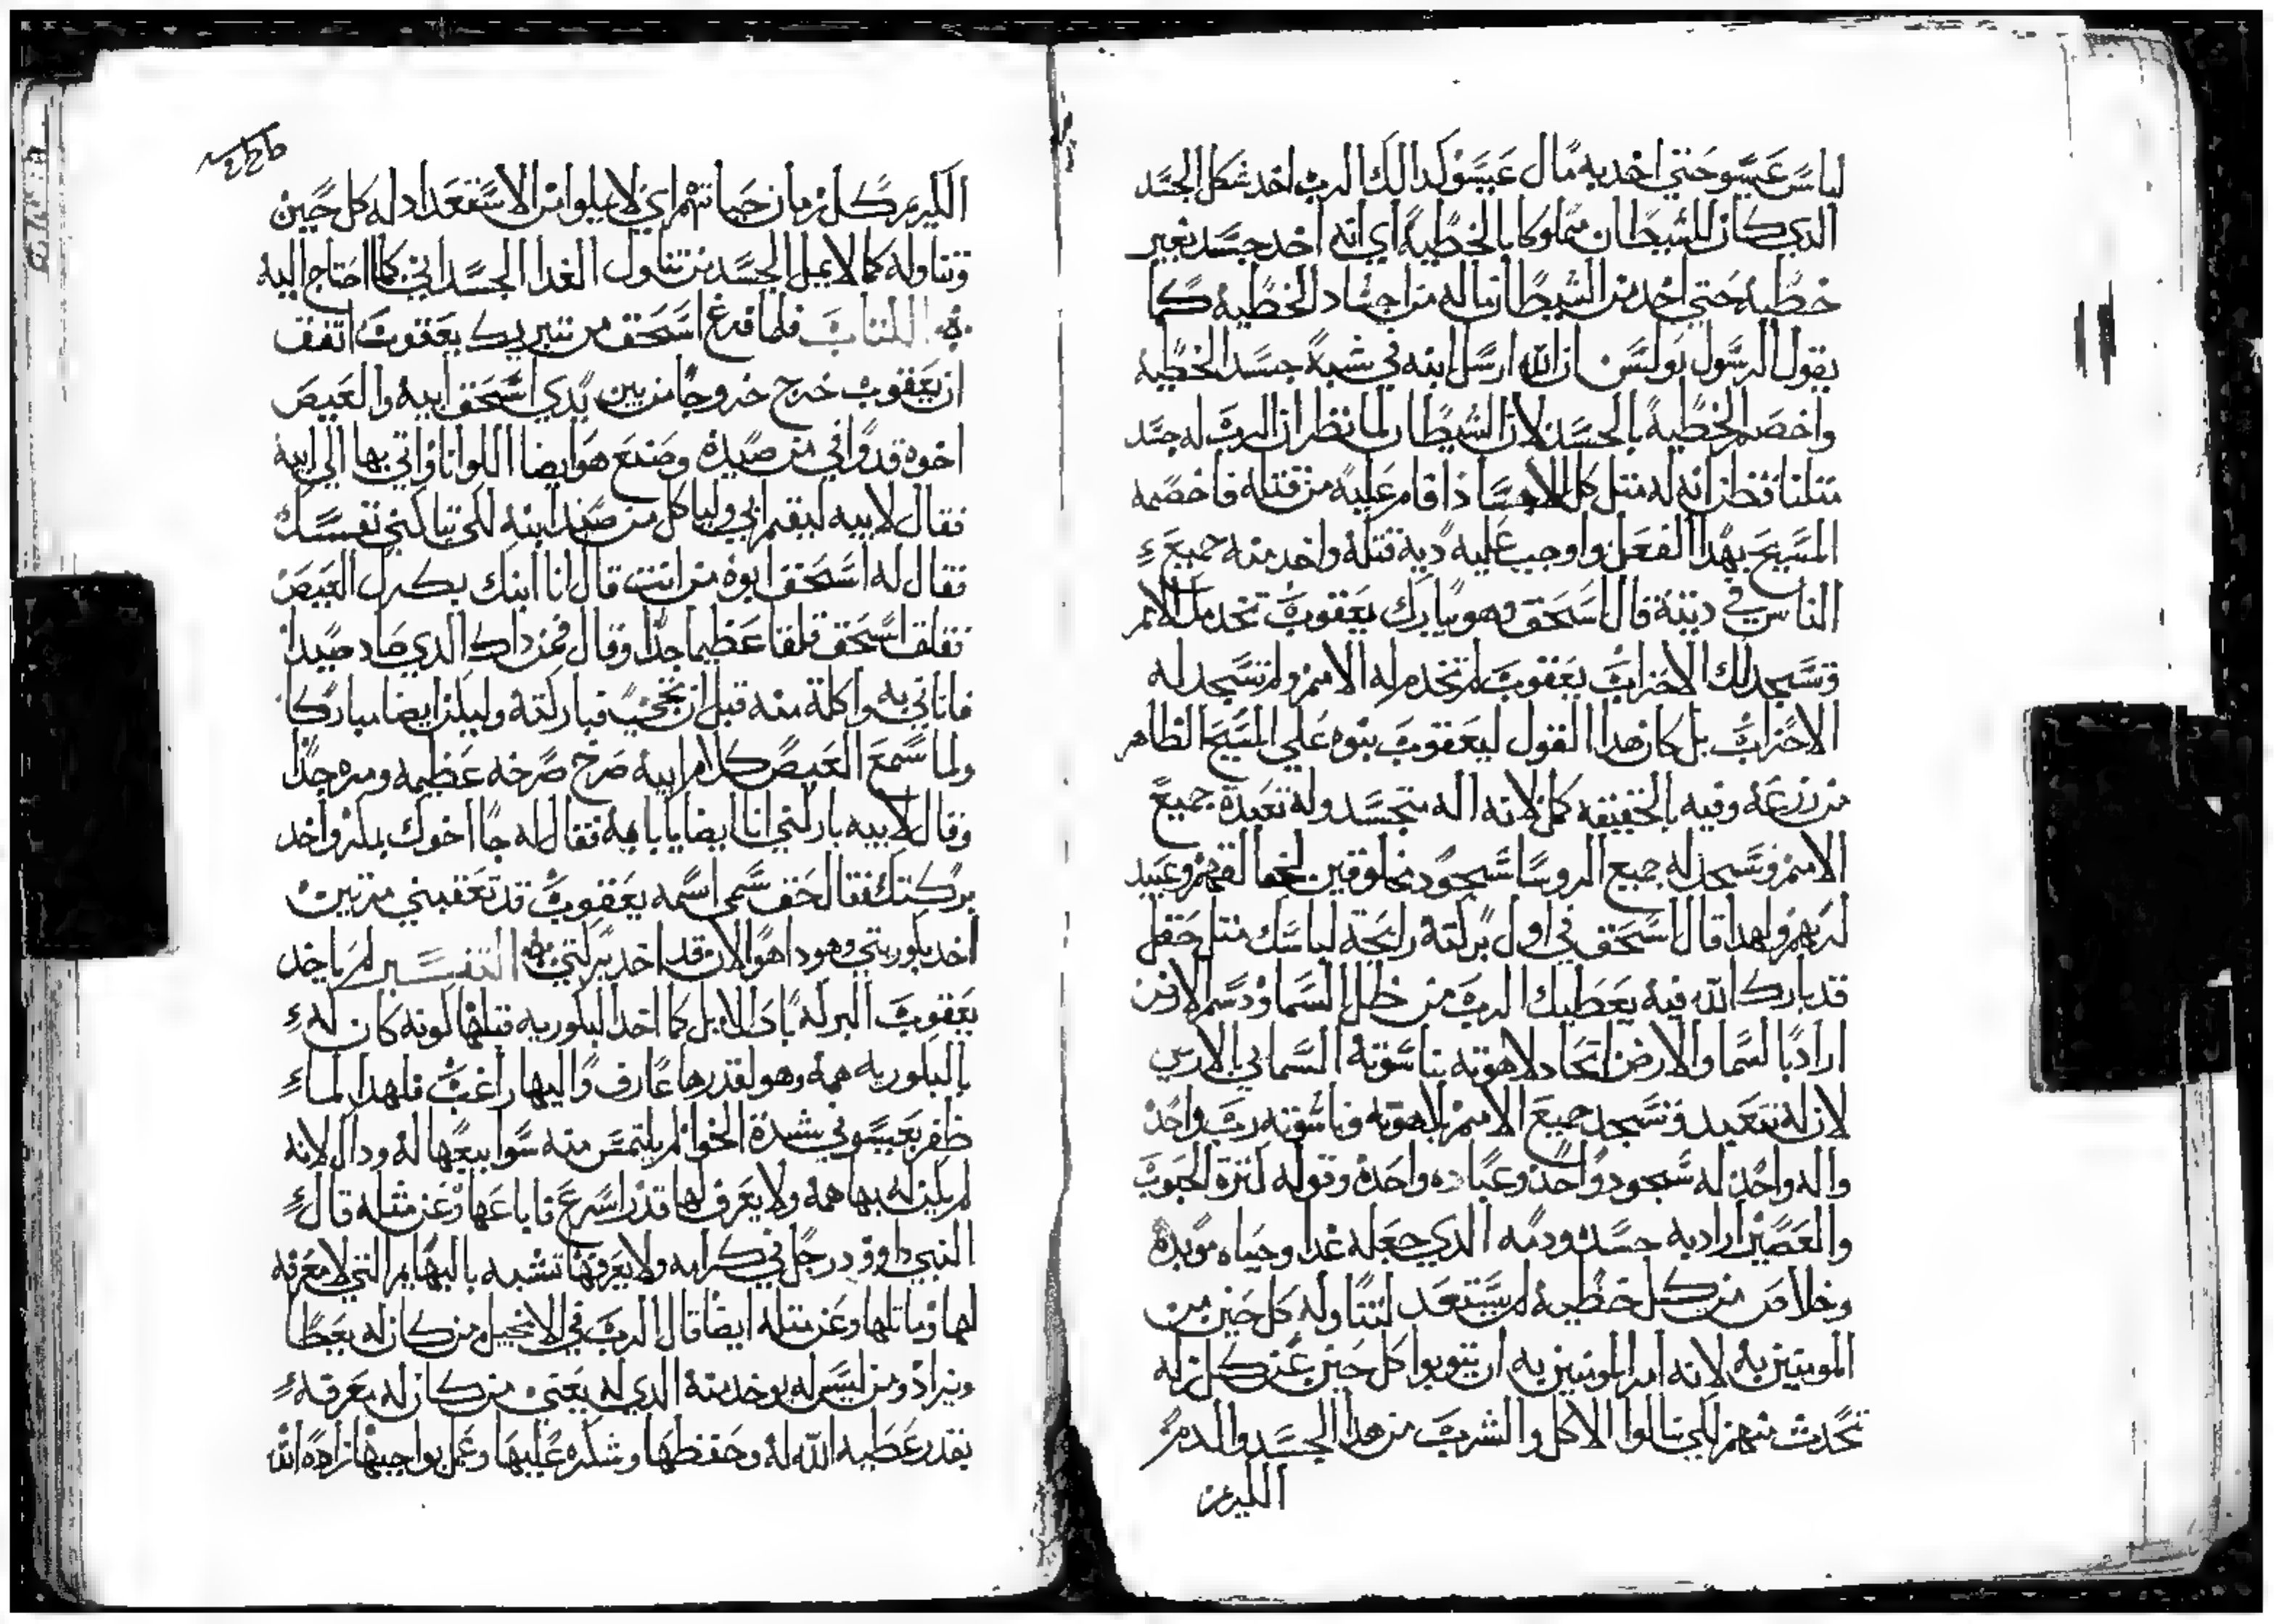 لباس عيسو حتي اخد به مال عيسو كدالك الرب اخد شكل الجسد
الدي كان للشيطان مملوكا بالخطية اي انه اخد جسد بغير
خطية حتي اخد من الشيطان ماله من اجساد الخطية كما
يقول الرسول بولس ان الله ارسل ابنه في شبه جسد الخطية
واخصم الخطية بالجسد لان الشيطان لما نظر ان الرب له جسد
متلنا فظن انه له متل كل الاجساد اقام عليه من قتله فاخصمه
المسيح بهدا الفعل واوجب عليه دية قتله واخد منه جميع
الناس في ديته قال اسحق وهو يبارك يعقوب تخدمك الامم
وتسجد لك الاحزاب يعقوب لم تخدم له الامم ولم تسجد له
الاحزاب بل كان هدا القول ليعقوب نبوه علي المسيح الظاهر
من زرعه وفيه بالحقيقه كمل لانه اله متجسد وله تعبدة جميع
الامم وتسجد له جميع الروسا سجود مخلوقين لخالقهم وعبيد
لربهم ولهدا قال اسحق في اول بركته رايحة لباسك متل حقل
قد بارك الله فيه يعطيك الرب من ظل السما ودسم الارض
اراد بالسما والارض اتحاد لاهوته بناسوته السماي بالارضي
لان له تتعبد وتسجد جميع الامم بلاهوته وناسوته رب واحد
واله واحد له سجود واحد وعباده واحده وقوله كترة الحبوب
والعصير اراد به جسده ودمه الدي جعله غدا وحياه موبدة
وخلاص من كل خطية لم يستعد لتناوله كل حين من
المومنين به لانه امر المومنين به ان يتوبوا كل حين عن كل زله
تحدت منهم لكي ينالوا الاكل والشرب من هدا الجسد والدم
الكريم
الكريم كل زمان حياتهم اي لا يملوا من الاستعداد له كل حين
وتناوله كما لا يمل الجسد من تناول الغدا الجسداني كلما احتاج اليه
الكتاب فلما فرغ اسحق من تبريك يعقوب اتفق
ان يعقوب خرج خروجا من بين يدي اسحق ابيه والعيص
اخوه قد وافي من صيده وصنع هو ايضا الوانا واتي بها الي ابيه
فقال لابيه ليقم ابي ولياكل من صيد ابنه لكي تباركني نفسك
فقال له اسحق ابوه من انت قال انا ابنك بكرك العيص
فقلق اسحق قلقا عظيما جدا وقال فمن داك الدي صاد صيدا
فاتاني به واكلة منه قبل ان تجي فباركته وليكن ايضا مباركا
ولما سمع العيص كلام ابيه صرخ صرخه عظيمه ومره جدا
وقال لابيه باركني انا ايضا يا ابه فقال له جا اخوك بمكر واخد
بركتك فقال حق سمي اسمه يعقوب قد تعقبني مرتين
اخد بكوريتي وهودا هو الان قد اخد بركتي التفسير لم ياخد
يعقوب البركه باطلا بل كما اخد البكوريه قبلها لونه كان له
بالبكوريه همه وهو لقدرها عارف واليها راغب فلهدا لما
ظفر بعيسو في شدة الخوا لم يلتمس منه سوا بيعها له وداك لانه
لم يكن له بها همه ولا يعرف لها قدر اسرع فاباعها وعن مثله قال
النبي داوود رجل في كرامه ولا يعرفها تشبه بالبهايم التي لا معرفه
لها وماتلها وعن متله ايضا قال الرب في الانجيل من كان له يعطا
ويزاد ومن ليس له يوخد منه الدي له يعني من كان له معرفه
بقدر عطيه الله له وحفظها وشكره عليها وعمل بواجبها زاده الله